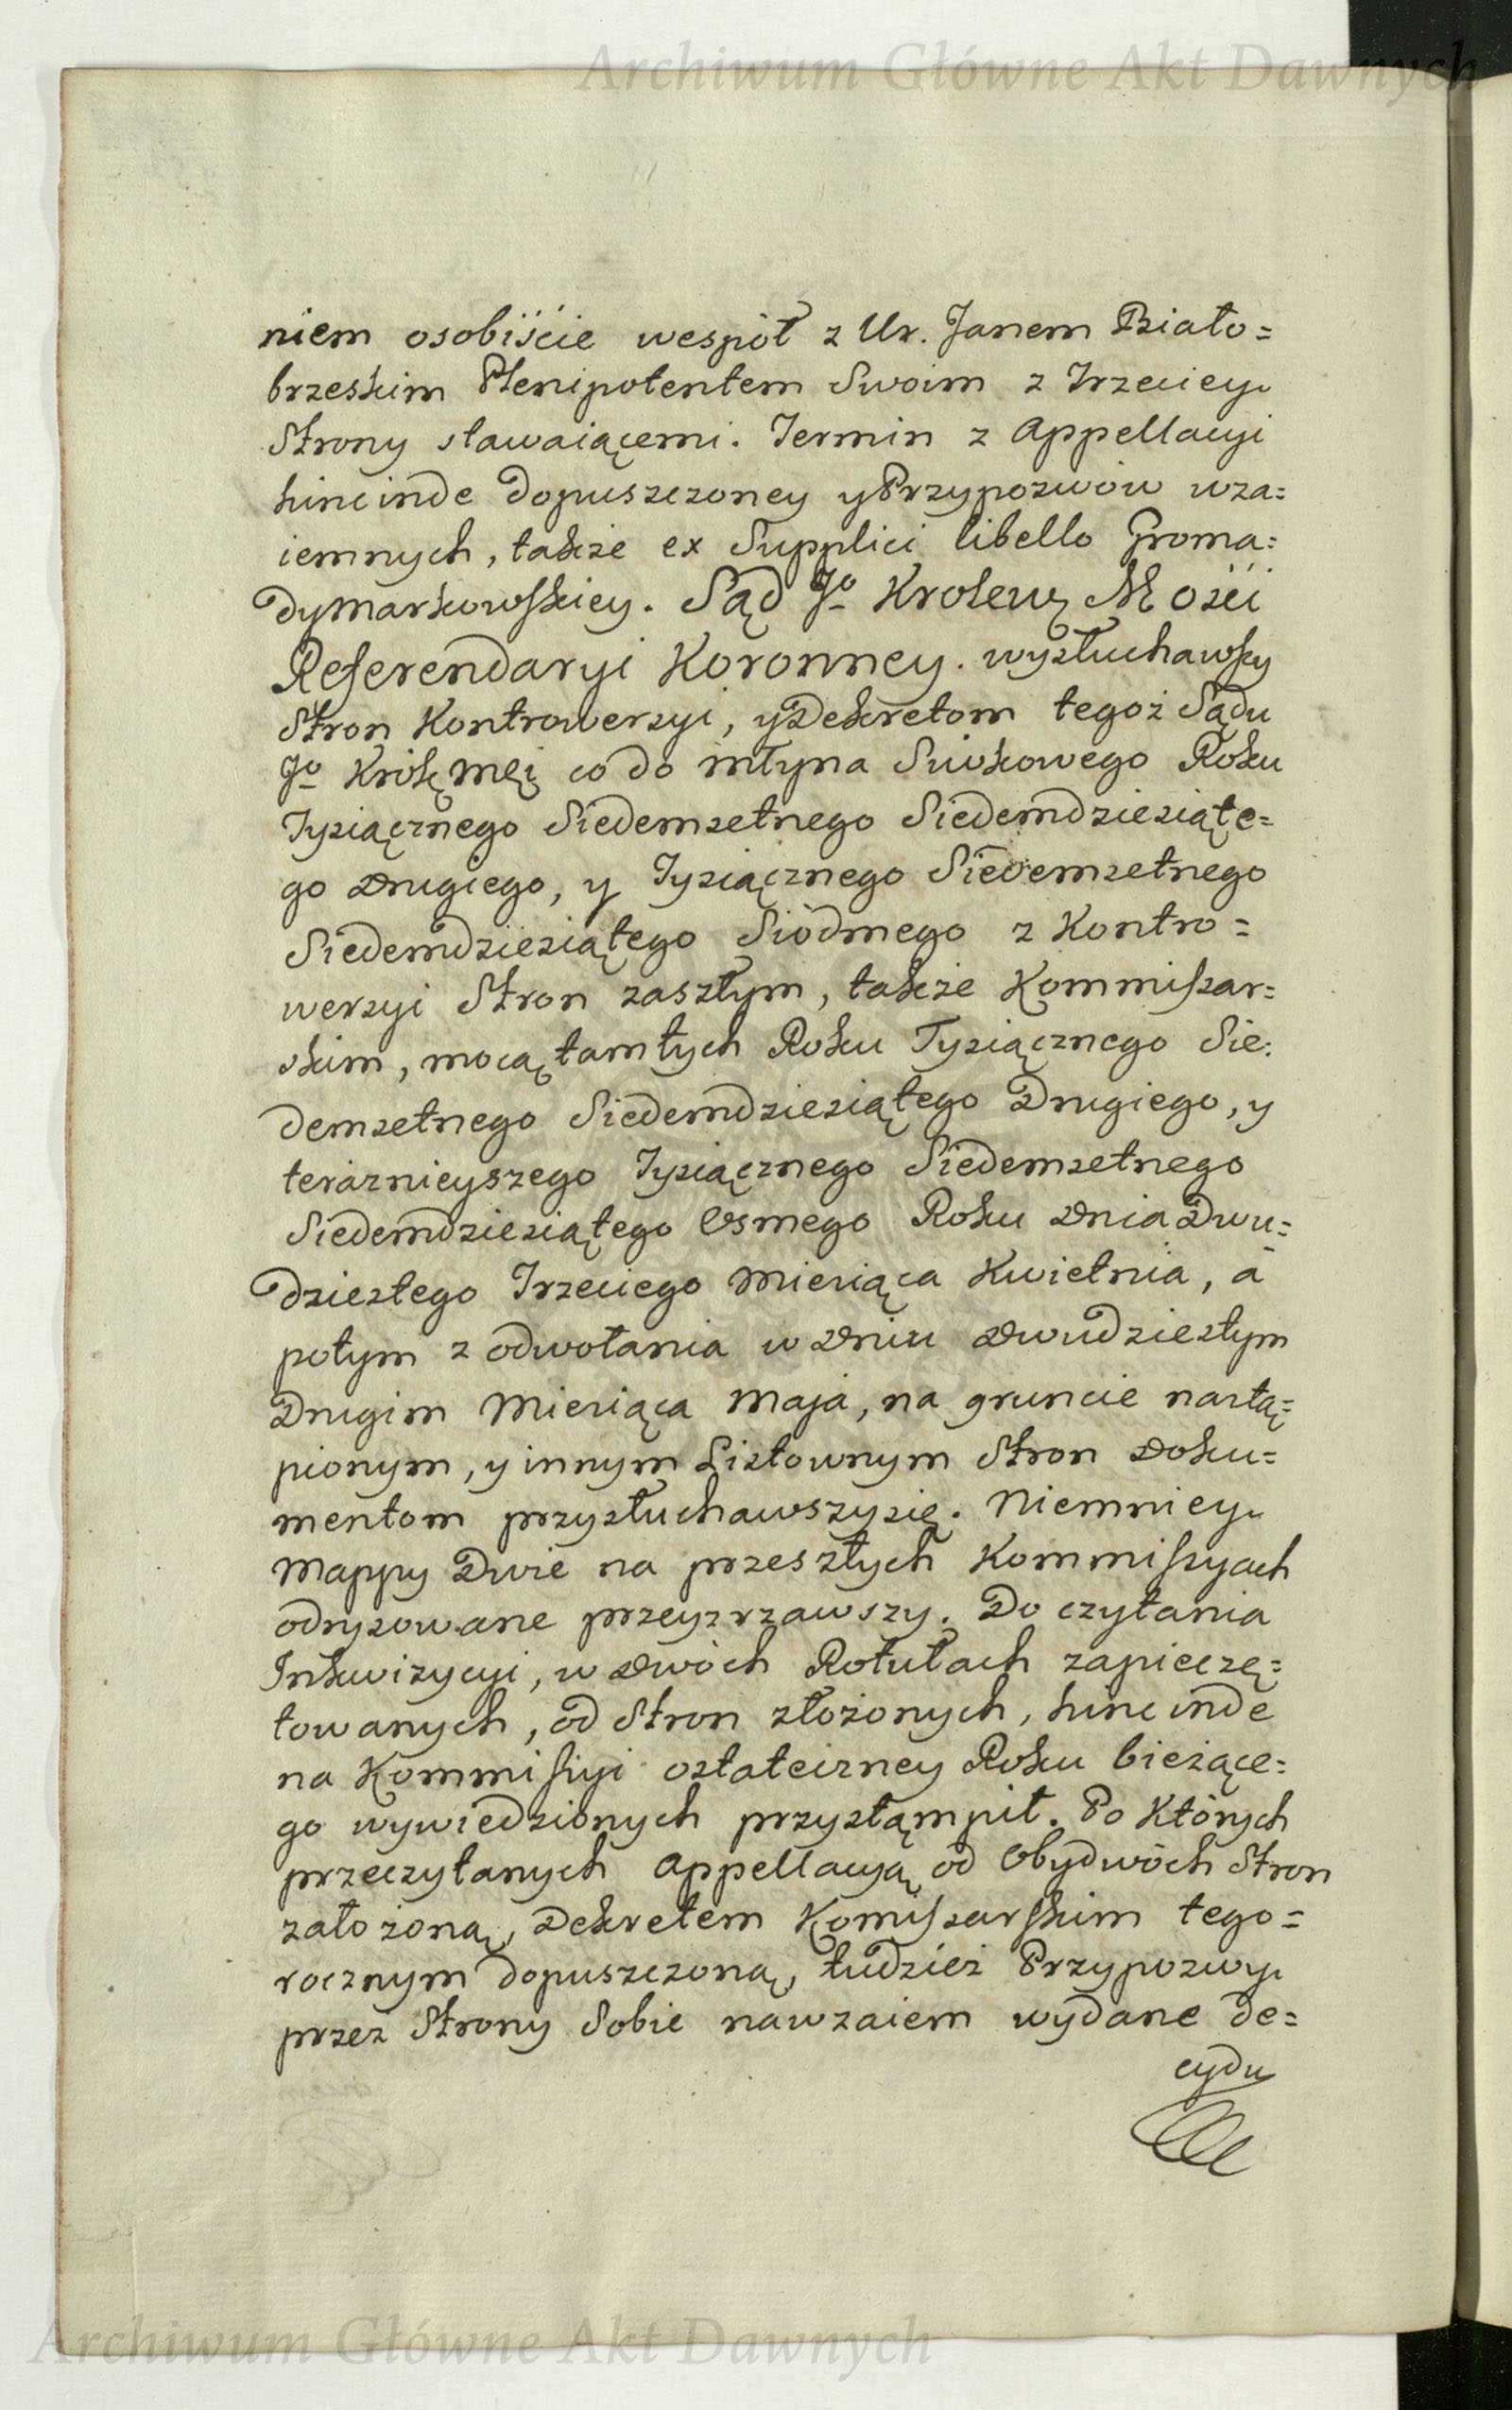 Archiwum Główne Akt Dawnych
niem osobiście wespół z Ur. Janem Biało=
brzeskim Plenipotentem Swoim z Trzeciey
Strony stawaiącemi. Termin z Appellacyi
hinc inde dopuszczoney y Przypozwow wza=
iemnych, także ex Supplici libello Groma=
dy Markowskiey. Sąd Jo Krolew Mości
Referendaryi Koronney. wysłuchawszy
Stron Kontrowersyi, y Dekretom tegoż Sądu
Jo Krolę Mci co do młyna Siwkowego Roku
Tysiącznego Siedemsetnego Siedemdziesiąte=
go Drugiego, y Tysiącznego Siedemsetnego
Siedemdziesiątego Siódmego z Kontro=
wersyi Stron zaszłym, także Kommissar=
skim, mocą tamtych Roku Tysiącznego Sie=
demsetnego Siedemdziesiątego Drugiego, y
teráznieyszego Tysiącznego Siedemsetnego
Siedemdziesiątego Osmego Roku Dnia Dwu=
dziestego Trzeciego Miesiąca Kwietnia, a
potym z odwołania w Dniu Dwudziestym
Drugim Miesiąca Maja, na gruncie nastą=
pionym, y innym Listownym Stron Doku=
mentom przysłuchawszy się. Niemniey
Mappy Dwie na przeszłych Kommissyach
odrysowane przeyzrzawszy. Do czytania
Inkwizycyi, w Dwóch Rotułach zapieczę=
towanych, od Stron złożonych, hinc inde
na Kommissyi ostateczney Roku bieżące=
go wywiedzionych przystąmpił. Po Których
przeczytanych Appellacyą od Obydwóch Stron
założoną, Dekretem Komissarskim tego=
rocznym dopuszczoną, tudzież Przypozwy
przez Strony Sobie nawzaiem wydane de=
cydu
Archiwum Główne Akt Dawnych